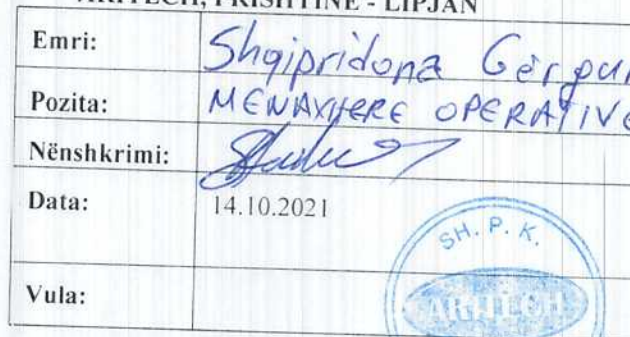 ARHTECH, PRISHTINË - LIPJAN
Emri: Shqipridona
Pozita: MENAXHERE OPERATIVE
Nënshkrimi:
Data: 14.10.2021
SH. P. K.
Vula: ARHTECH